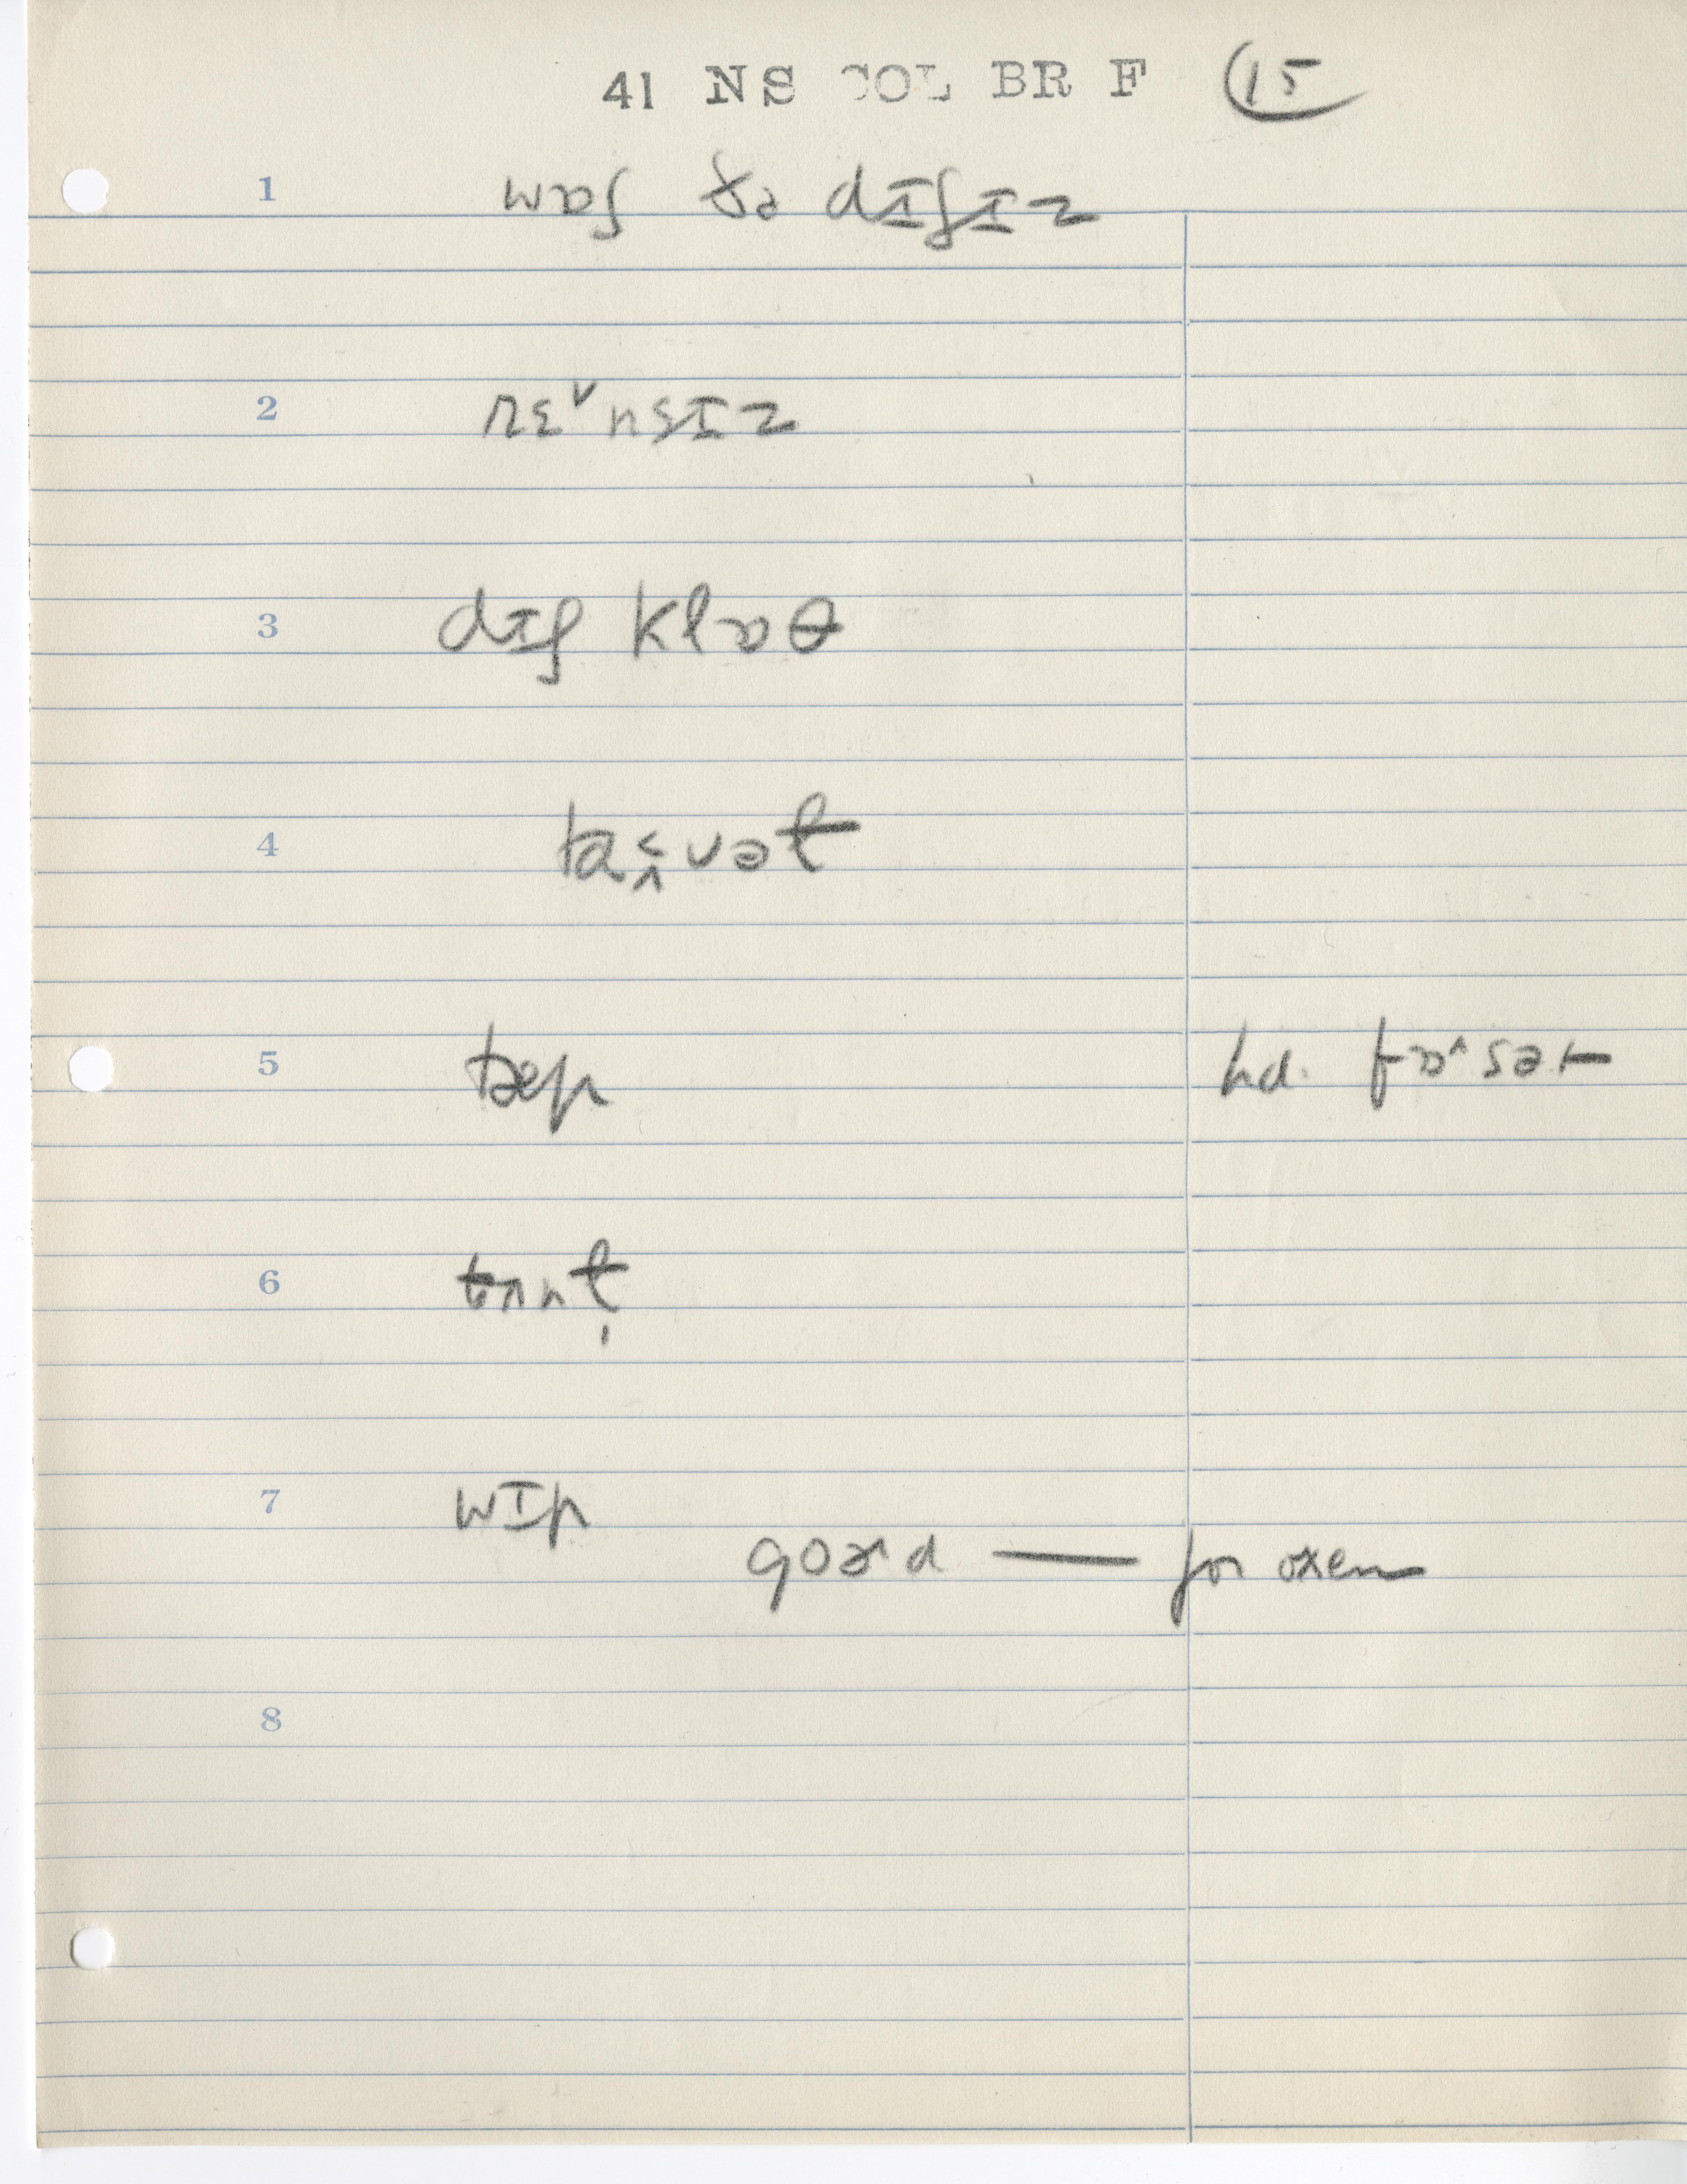 41 NS COL BR F 15
1 wɒʃ ðə dɪʃɪz
2 rɛ˅nsɪz
3 dɪʃ klɒθ
4 ta
5 tæp hd. fɒ^sət
6 tʌnt
7 wɪp
goɚd — for oxen
8